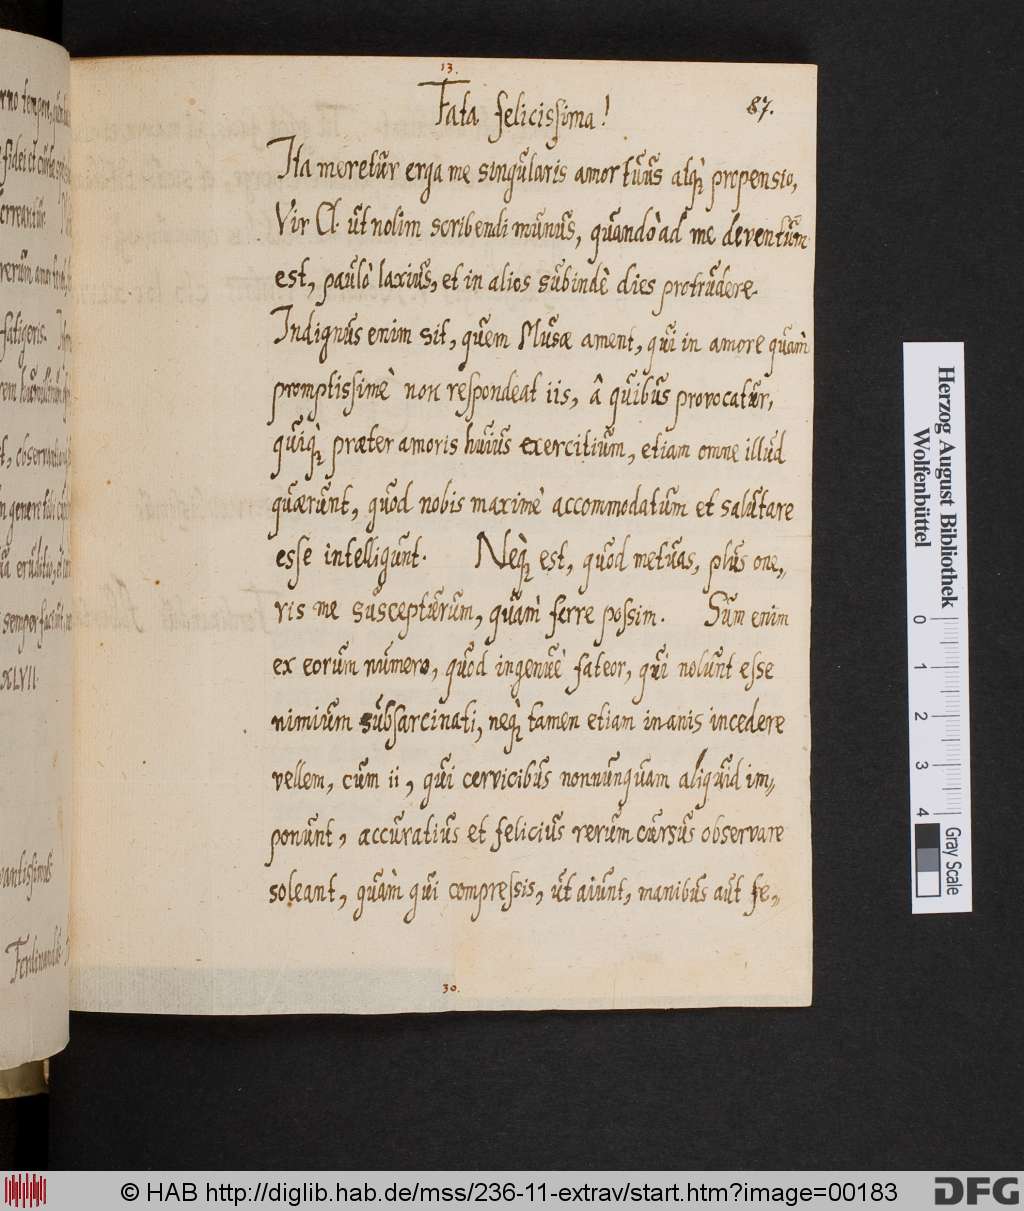 13.
87.
Fata felicissima!
Ita meretur erga me singularis amor tuus atq; propensio,
Vir Cl. ut nolim scribendi munus, quandò ad me deventum
est, paulò laxius, et in alios subindè dies protrudere.
Indignus enim sit, quem Musæ ament, qui in amore quàm
promptissimè non respondeat iis, â quibus provocatur,
quiq; præter amoris huius exercitium, etiam omne illud
quærunt, quod nobis maximè accommodatum et salutare
esse intelligunt. Neq; est, quod metuas, plus one,,
ris me suscepturum, quàm ferre possim. Sum enim
ex eorum numero, quod ingenuè fateor, qui nolunt esse
nimium subsarcinati, neq; tamen etiam inanis incedere
vellem, cum ii, qui cervicibus nonnunquam aliquid im,,
ponunt, accuratius et felicius rerum cursus observare
soleant, quàm qui compressis, ut aiunt, manibus aut fe,,
30.
rno tempore,
fidei et
rerum amor
fatigeris.
observant
genere
erudito
semper
XLVII.
vantissimus
Ferdinandus
Herzog August Bibliothek
Wolfenbüttel
0 1 2 3 4
Gray Scale
© HAB http://diglib.hab.de/mss/236-11-extrav/start.htm?image=00183
DFG